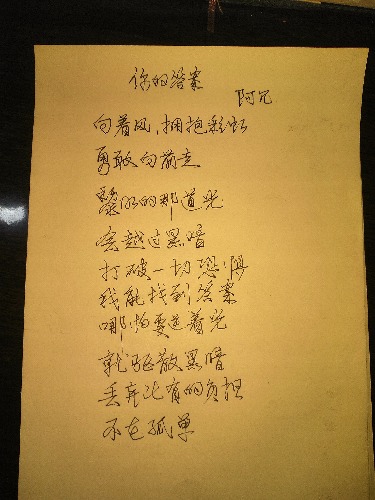 你的答案
阿冗
向着风,拥抱彩虹
勇敢向前走
黎明的那道光
会越过黑暗
打破一切恐惧
我能找到答案
哪怕要逆着光
就驱散黑暗
丢弃所有的负担
不在孤单